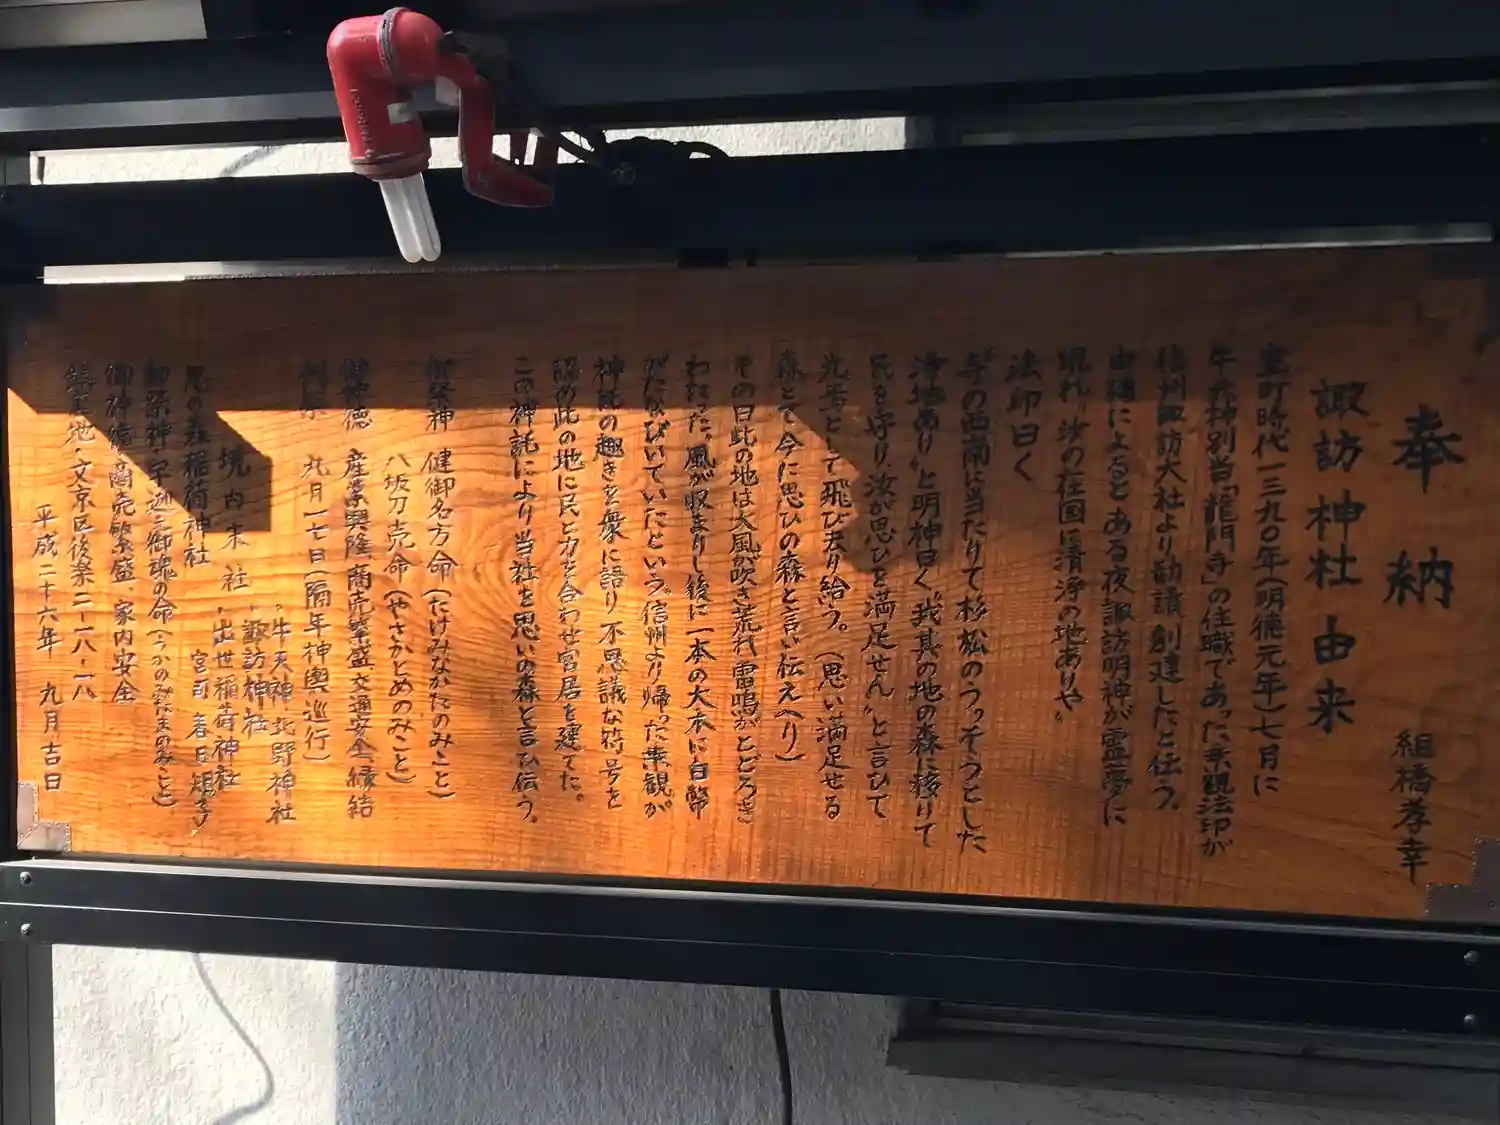 奉納 組橋孝幸
諏訪神社由来
室町時代一三九〇年(明徳元年)七月に
牛天神別当「龍門寺」の住職であった兼観法印が
信州諏訪大社より勧請創建したと伝う。
由緒によるとある夜諏訪明神が霊夢に
現れ〝汝の在国に清浄の地ありや〟
法印曰く
〝寺の西南に当たりて杉松のうっそうとした
浄地あり〟と明神曰く〝我其の地の森に移りて
民を守り汝が思ひを満足せん〟と言ひて
光寺として飛び去り給う。(思い満足せる
森とて今に思ひの森と言い伝えへり)
その日此の地は大風が吹き荒れ雷鳴がとどろき
わたった。風が収まりし後に一本の大木に白幣
がたなびいていたという。信州より帰った兼観が
神託の趣きを衆に語り不思議な符号を
認め此の地に民と力を合わせ宮居を建てた。
この神託により当社を思いの森と言ひ伝う。
御祭神 健御名方命(たけみなかたのみこと)
八坂刀売命(やさかとめのみこと)
御神徳 産業興隆、商売繁盛、交通安全、縁結
例祭 九月二七日(隔年神輿巡行)
・牛天神北野神社
境内末社・諏訪神社
・出世稲荷神社
思の森稲荷神社 宮司 春日
御祭神・宇迦之御魂の命(うかのみたまのみこと)
御神徳・商売繁盛、家内安全
鎮主地・文京区後楽二-一八-一八
平成二十六年 九月吉日